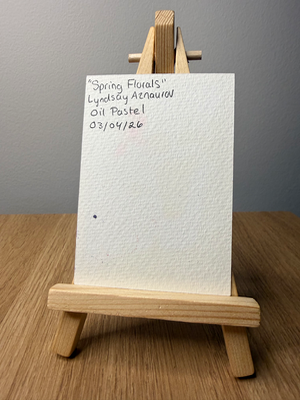 "Spring Florals"
Lyndsay Aznaurov
Oil Pastel
03/04/26